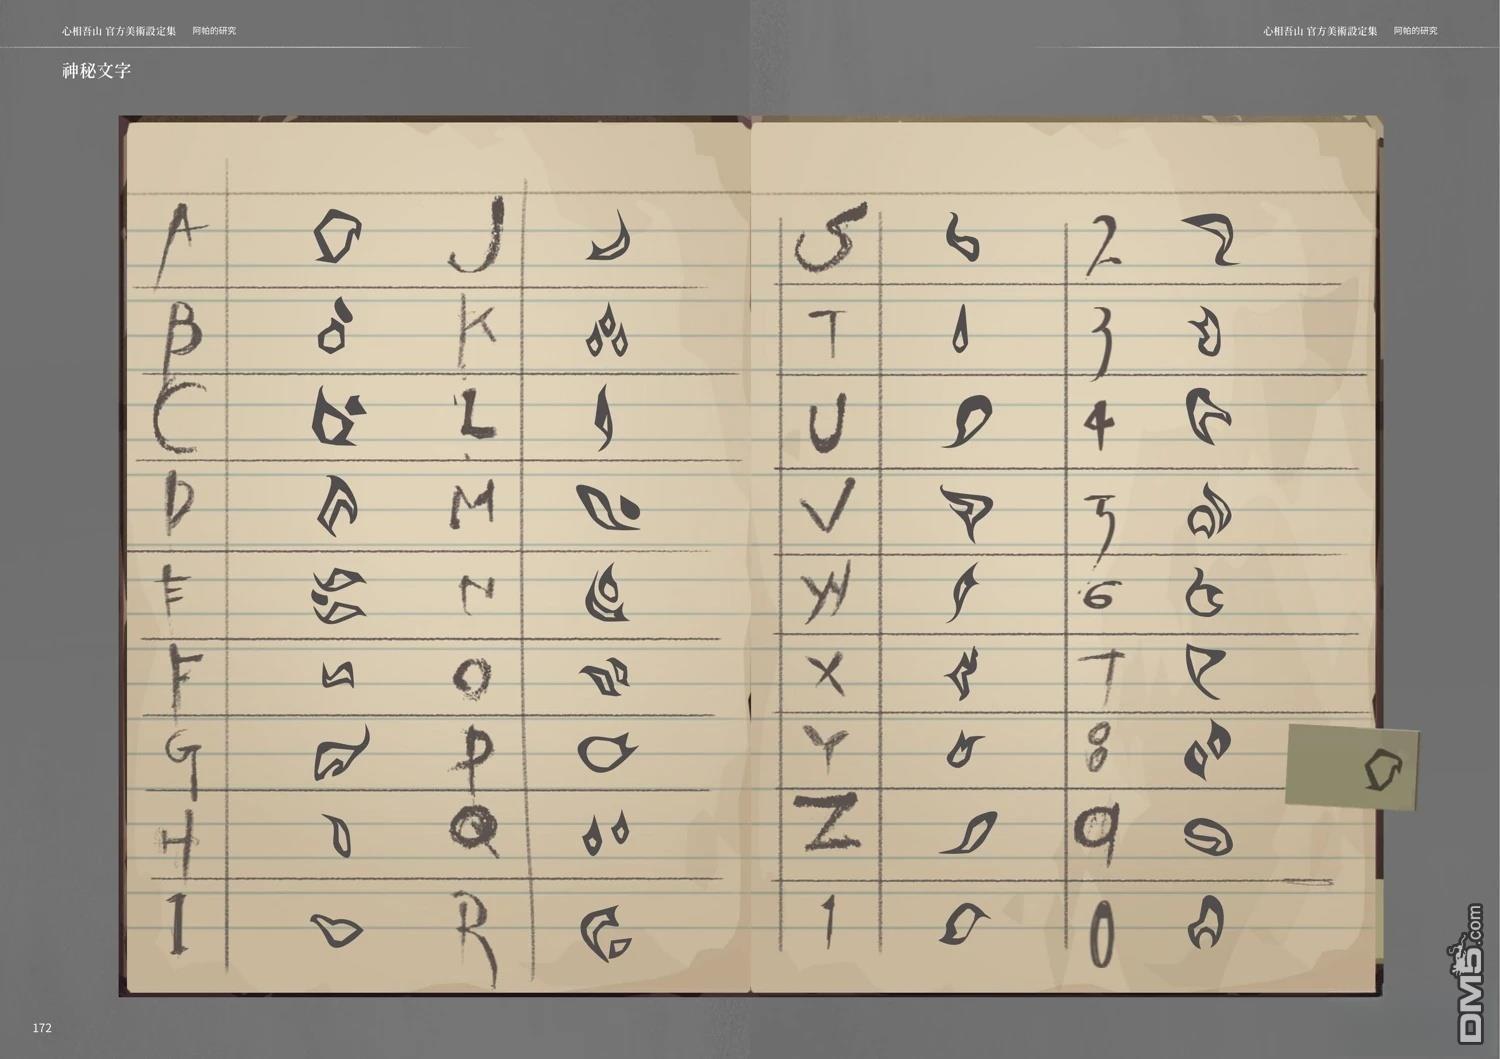 心相吾山 官方美術設定集 阿帕的研究
心相吾山 官方美術設定集 阿帕的研究
神秘文字
A J
B K
C L
D M
E N
F O
G P
H Q
I R
S 2
T 3
U 4
V 5
W 6
X 7
Y 8
Z 9
1 0
172
DM5.com